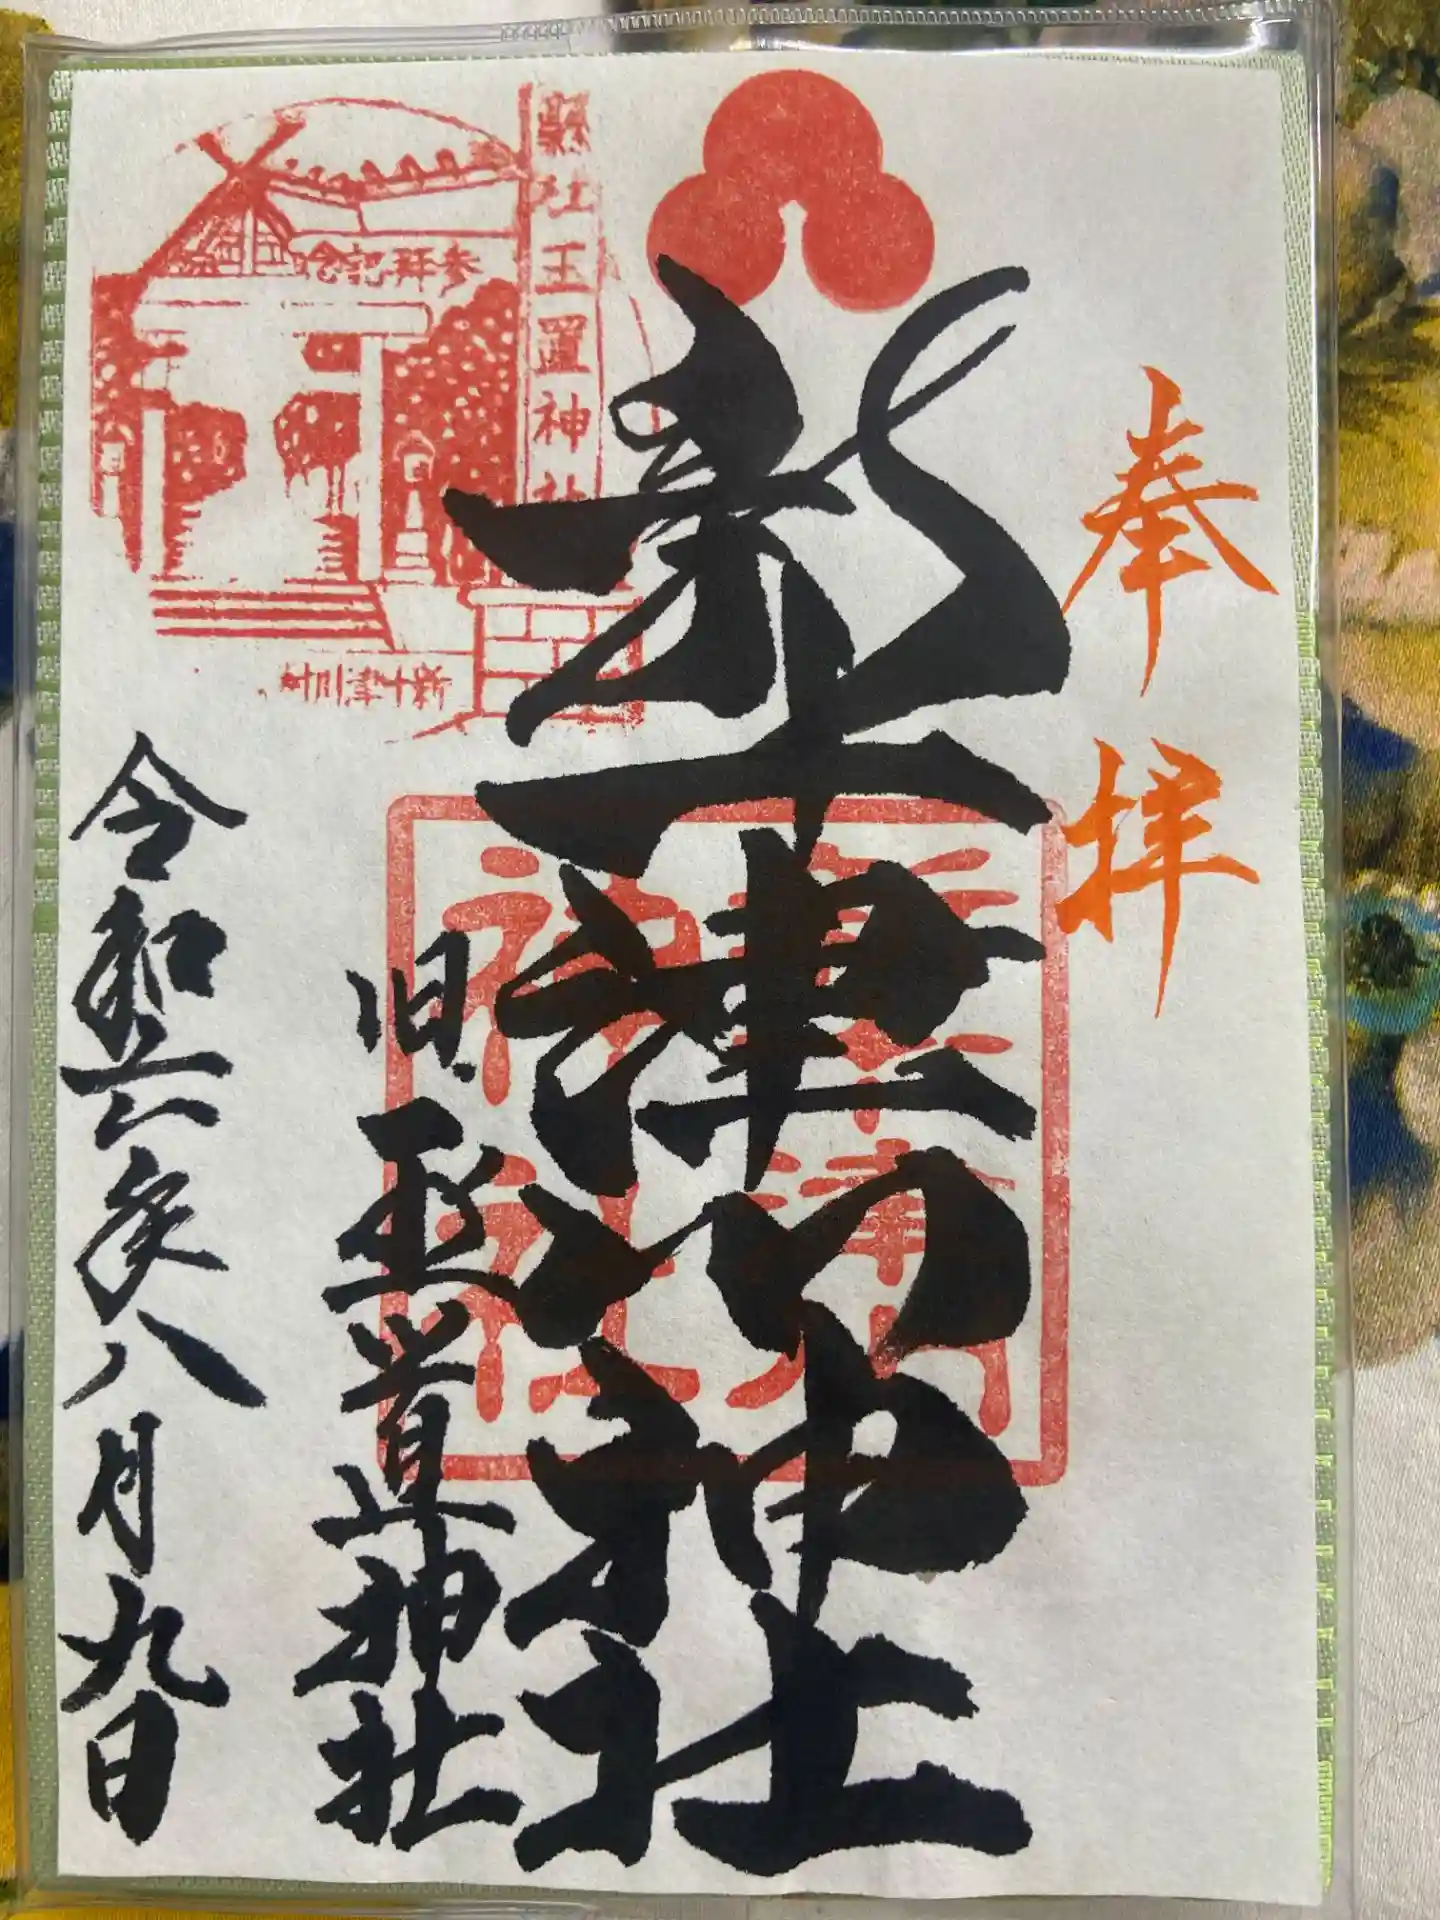 奉拝
新十津川神社
縣社玉置神社
参拝記念
新十津川村
旧 玉置神社
令和六年八月九日